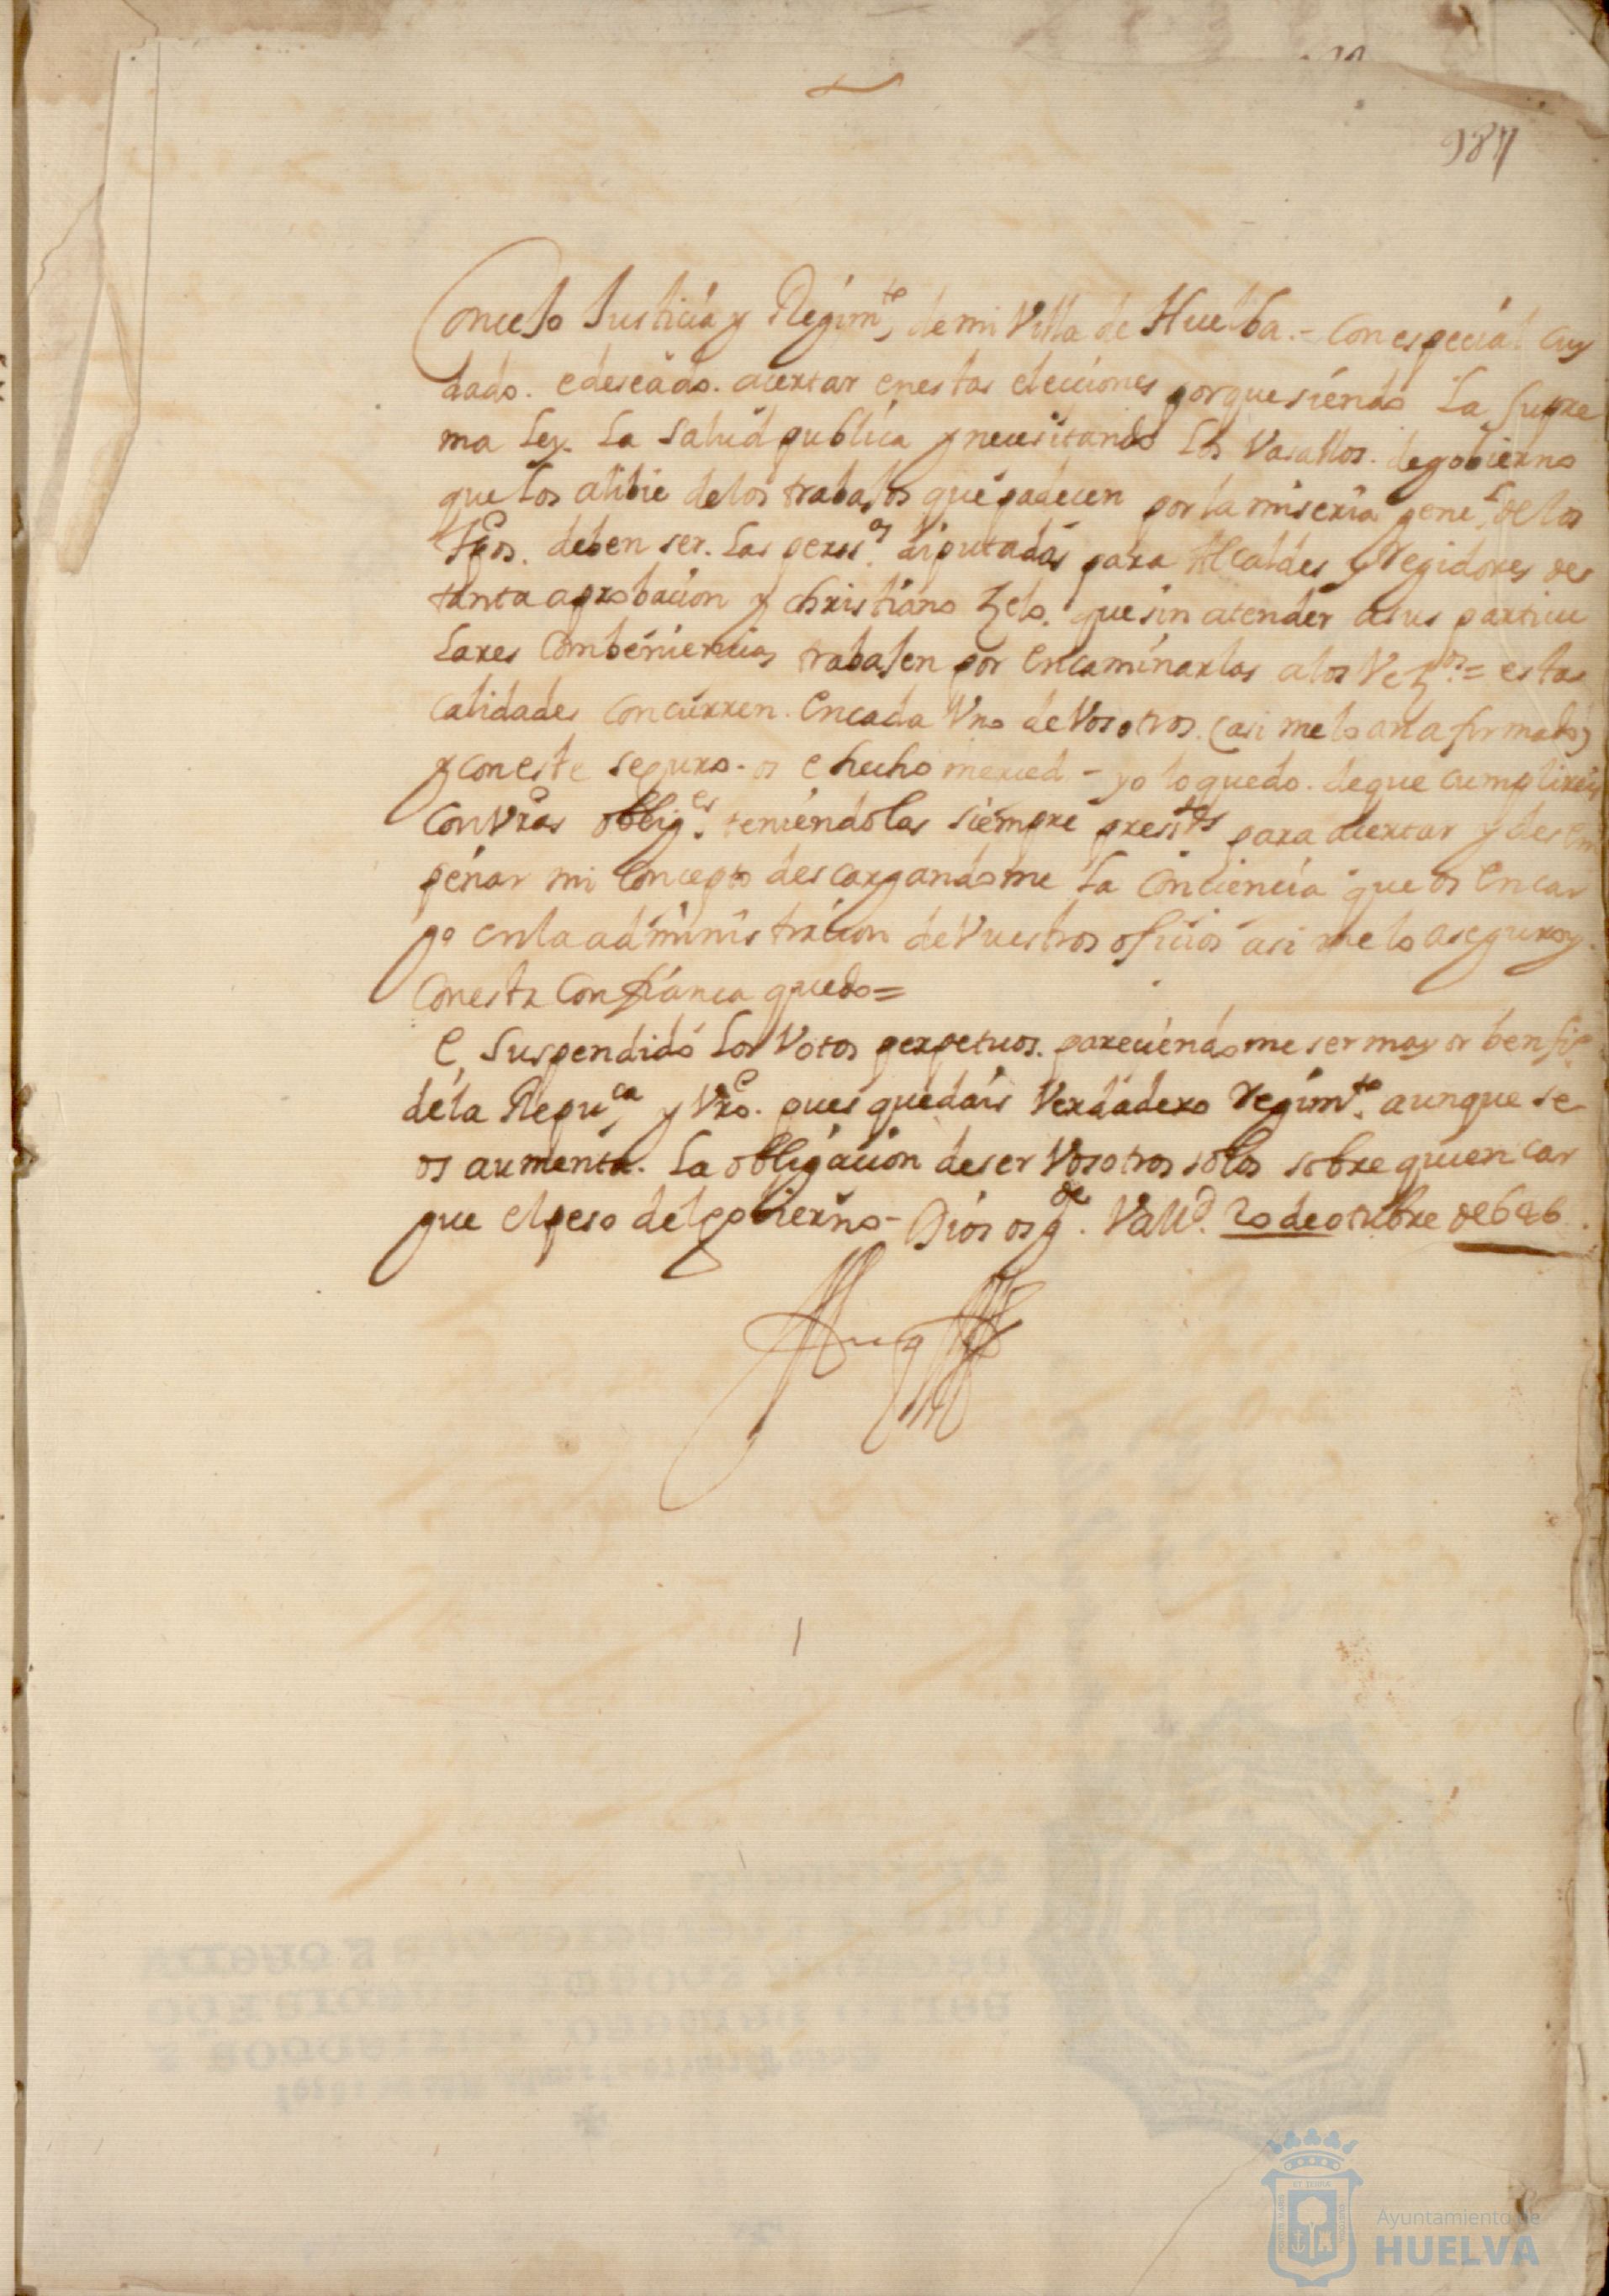 987
Concejo Justicia y Regimto de mi Villa de Huelba.- Con especial cuy
dado. e deseado. acertar en estas elecciones porque siendo La supre
ma Ley. La salud publica y necesitando Los Vasallos. de gobierno
que los alibie de los trabajos que padecen por la miseria genel. de los
tpos. deben ser. Las perss. diputadas para Alcaldes y Regidores de
tanta aprobacion y christiano Zelo. que sin atender a sus particu
Lares Combeniencias trabajen por encaminarlas a los Vezos.= estas
calidades concurren. en cada Vno de Vosotros. (asi me lo an afirmado)
y con este seguro. os e hecho merced - yo lo quedo. de que cumplireis
con Vras obliges. teniendolas siempre presites para acertar y desem
penar mi concepto descargandome La conciencia que os encar
go en la administracion de Vuestros oficios asi me lo aseguro y.
con esta confianca quedo=
e, suspendido Los Votos perpetuos. pareciendome ser mayor benfio.
de la Repuca y Vro. pues quedais Verdadero regimto. aunque se
os aumenta. La obligacion de ser Vosotros solos sobre quien car
gue el peso del gobierno- Dios os gde. Valld. 20 de otubre de 646
Ayuntamiento de
HUELVA